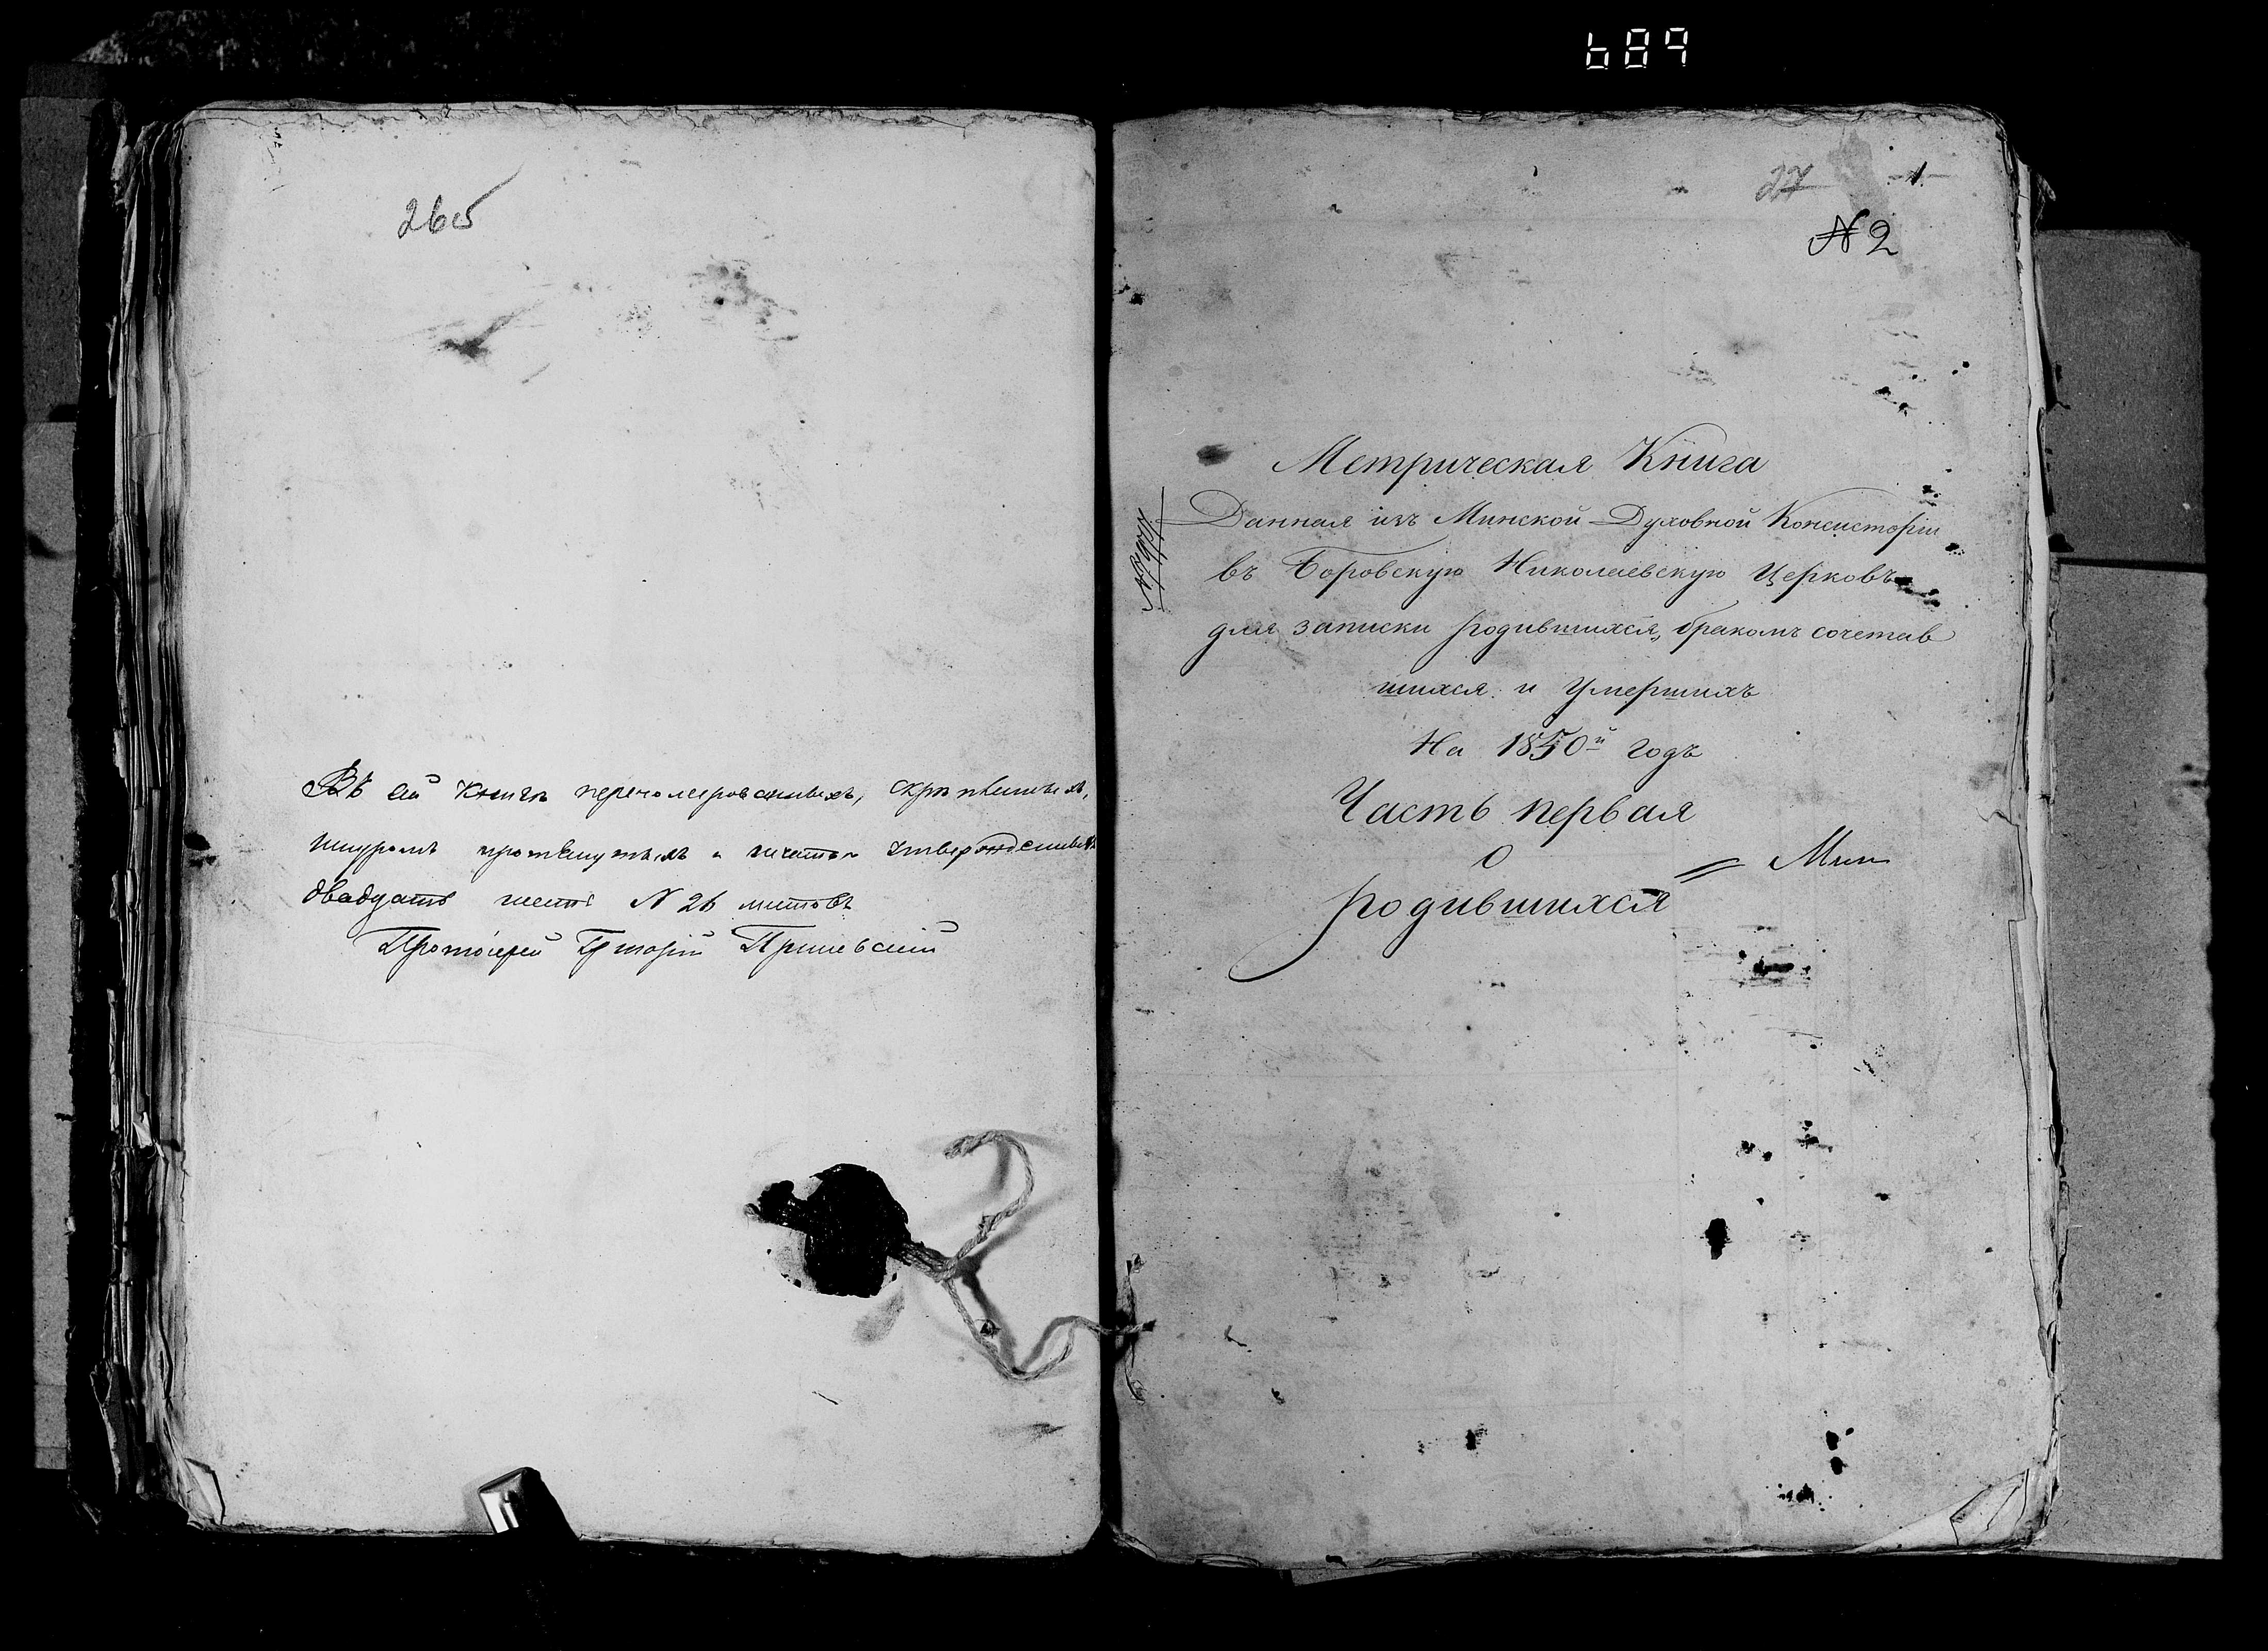 689
26об
Въ сей Книгѣ перенумерованныхъ, скрѣпленныхъ,
шнуромъ протянутыхъ и печатью утвержденныхъ
двадцать шесть N 26 листовъ
Протоіерей Григорій
27 1
N 2
Метрическая Книга
Данная изъ Минской Духовной Консисторіи
въ Боровскую Николаевскую Церковь
для записки родившихся, бракомъ сочетав
шихся и Умершихъ
На 1850й годъ
Часть первая
О
родившихся